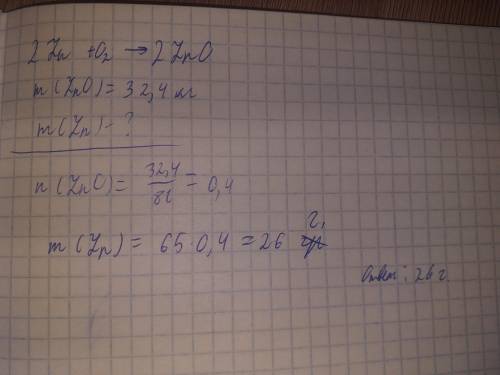 2Zn + O₂ → 2ZnO
m(ZnO) = 32,4 кг
m(Zn) - ?
n(ZnO) = 32,4/81 = 0,4
m(Zn) = 65·0,4 = 26 г.
Ответ: 26 г.